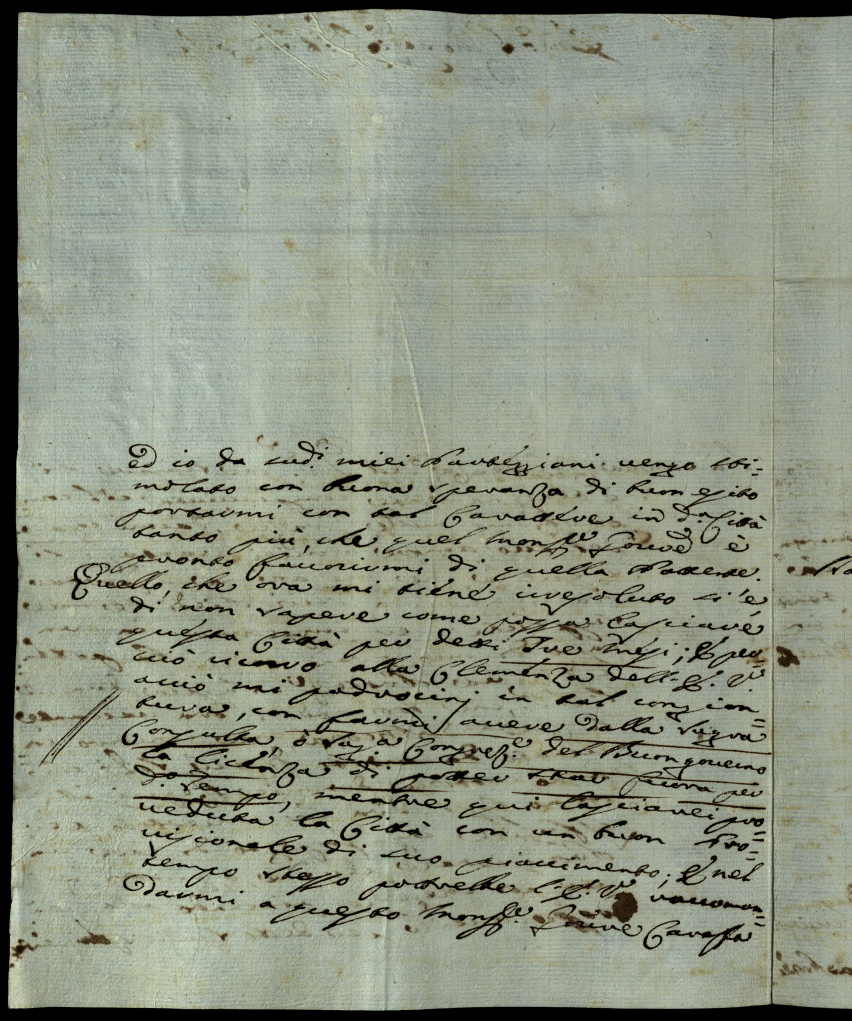 ed io da sud.i miei Parteggiani vengo sti=
molato con buona speranza di buon esito
portarmi con tal Carattere in d.a Città
tanto più, che quel Monsig.re Gover.e è
pronto favorirmi di quella Patente.
Quello, che ora mi tiene irresoluto si è
di non sapere come possa lasciare
questa Città per detti Tre Mesi; e per
ciò ricorro alla Clemenza dell'E. V.
acciò mi patrocinj in tal congion=
tura, con farmi avere dalla Sagra
Consulta, o sia Congreg.e del Buongoverno
la licenza di poter star fuora per
d.o Tempo, mentre qui lasciarei pro=
veduta la Città con un buon Pro=
visionale di suo piacimento; e nel
tempo stesso potrebbe l'E. V. raccoman=
darmi a questo Monsig.re Gover.e Caraffa